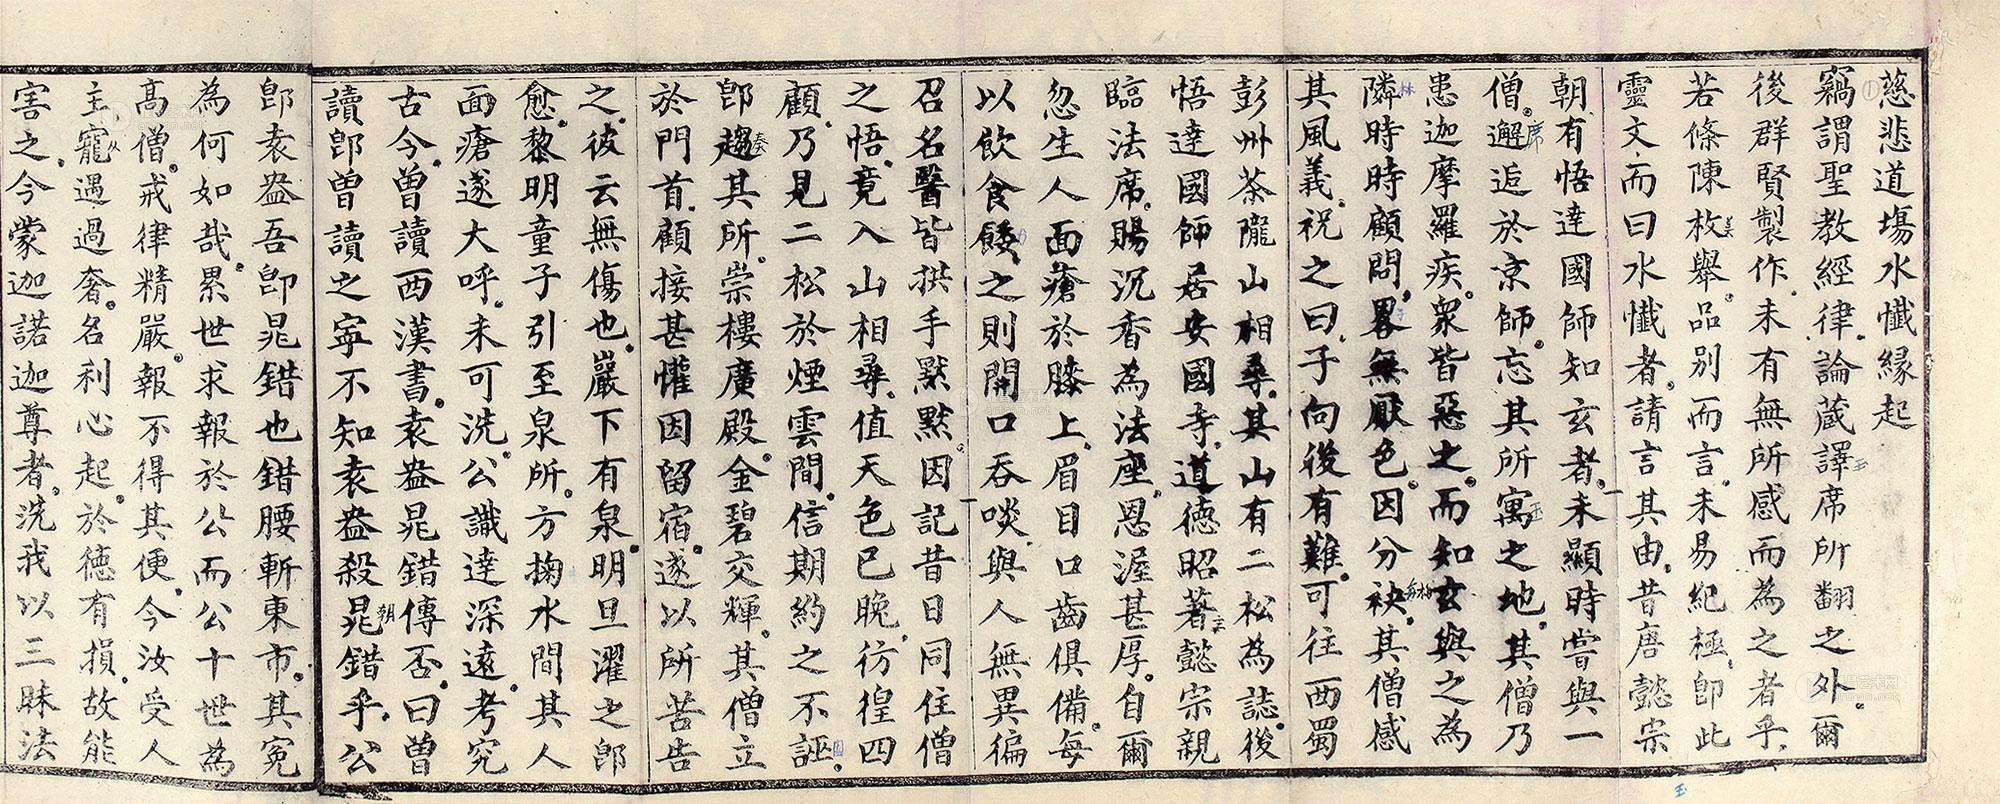 慈悲道場水懺縁起
竊謂聖教經律論蔵譯席所翻之外爾
後群賢製作未有無所感而為之者乎
若條陳枚舉品別而言未易紀極卽此
靈文而曰水懺者請言其由昔唐懿宗
朝有悟達國師知玄者未顯時嘗與一
僧邂逅於京師忘其所寓之地其僧乃
患迦摩羅疾衆皆惡之而知玄與之為
隣時時顧問畧無厭色因分袂其僧感
其風義祝之曰子向後有難可往西蜀
彭州茶隴山相尋其山有二松為誌後
悟達國師居安國寺道德昭著懿宗親
臨法席賜沉香為法座恩渥甚厚自爾
忽生人面瘡於膝上眉目口齒俱備每
以飲食餧之則開口吞啖與人無異徧
召名醫皆拱手默默因記昔日同住僧
之悟竟入山相尋值天色已晚彷徨四
顧乃見二松於煙雲間信期約之不誣
卽趨其所崇樓廣殿金碧交輝其僧立
於門首顧接甚懽因留宿遂以所苦告
之彼云無傷也巖下有泉明旦濯之卽
愈黎明童子引至泉所方掬水間其人
面瘡遂大呼未可洗公識達深遠考究
古今曾讀西漢書袁盎晁錯傳否曰曾
讀卽曾讀之寧不知袁盎殺晁錯乎公
卽袁盎吾卽晁錯也錯腰斬東市其冤
為何如哉累世求報於公而公十世為
高僧戒律精嚴報不得其便今汝受人
主寵遇過奢名利心起於德有損故能
害之今蒙迦諾迦尊者洗我以三昧法